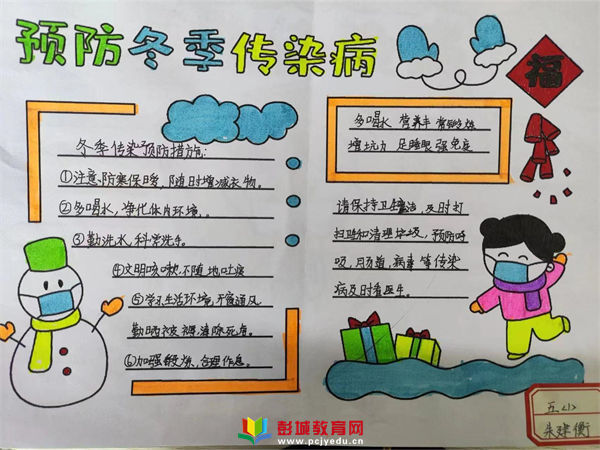 预防冬季传染病
福
冬季传染预防措施:
①注意防寒保暖,随时增减衣物。
②多喝水,净化体内环境。
③勤洗水,科学洗手。
④文明咳嗽,不随地吐痰
⑤学习生活环境,开窗通风
勤晒被褥,清除死角。
⑥加强锻炼,合理作息。
多喝水 营养丰 常锻炼
增抗力 足睡眠 强免疫
请保持卫生整洁,及时打
扫卫和清理垃圾,预防呼
吸,肠道,病毒等传染
病及时看医生。
五(1)
朱建衡
彭城教育网
www.pcjyedu.cn